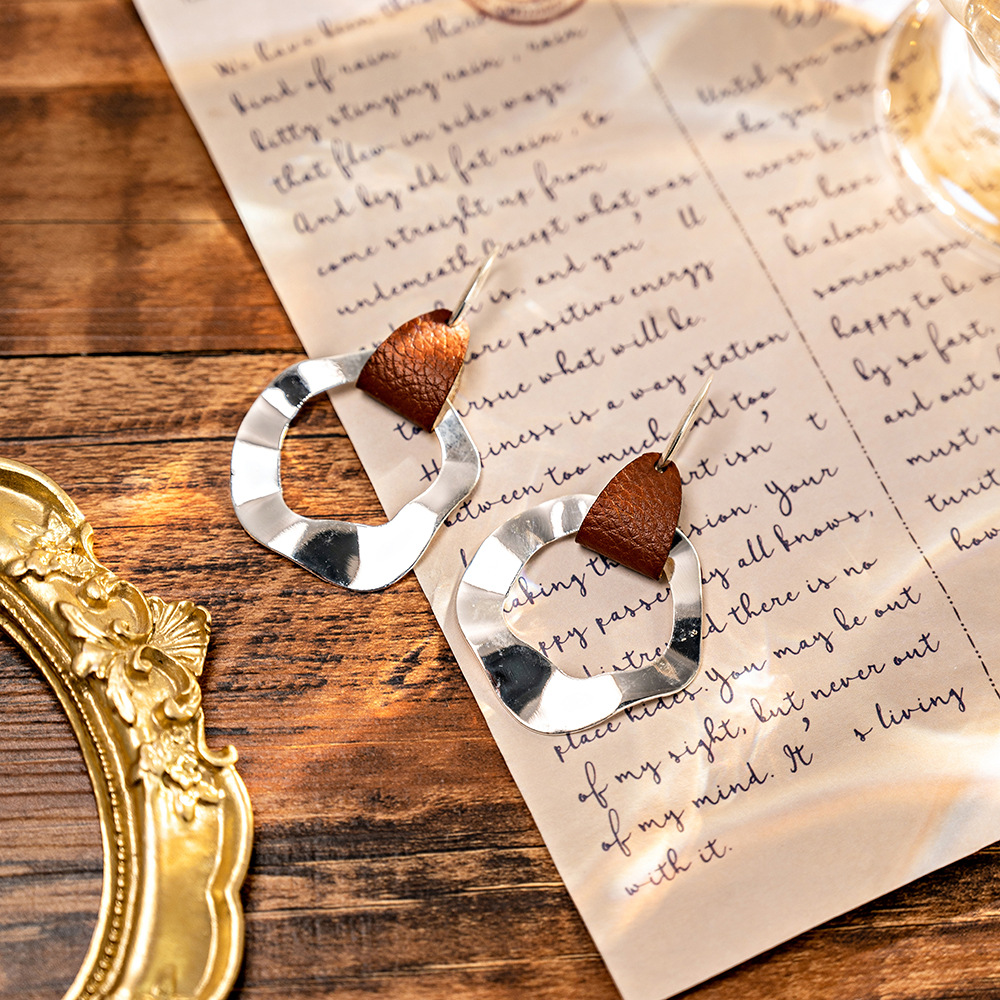 We have been
kind of rain
bitty stinging rain, rain
that flew in side ways
And big old fat rain, to
come straight up from
underneath Accept what was
is, and you ’ ll
more positive energy
pursue what will be.
Happiness is a way station
between too much and too
art isn ’ t
making the sion. Your
happy passes by all knows,
distre d there is no
place hides. You may be out
of my sight, but never out
of my mind. It ’ s living
with it.
Until you make
who you are
never be con
you have
be alone tha
someone you
happy to be
by so fast,
and out o
must n
tunit
how